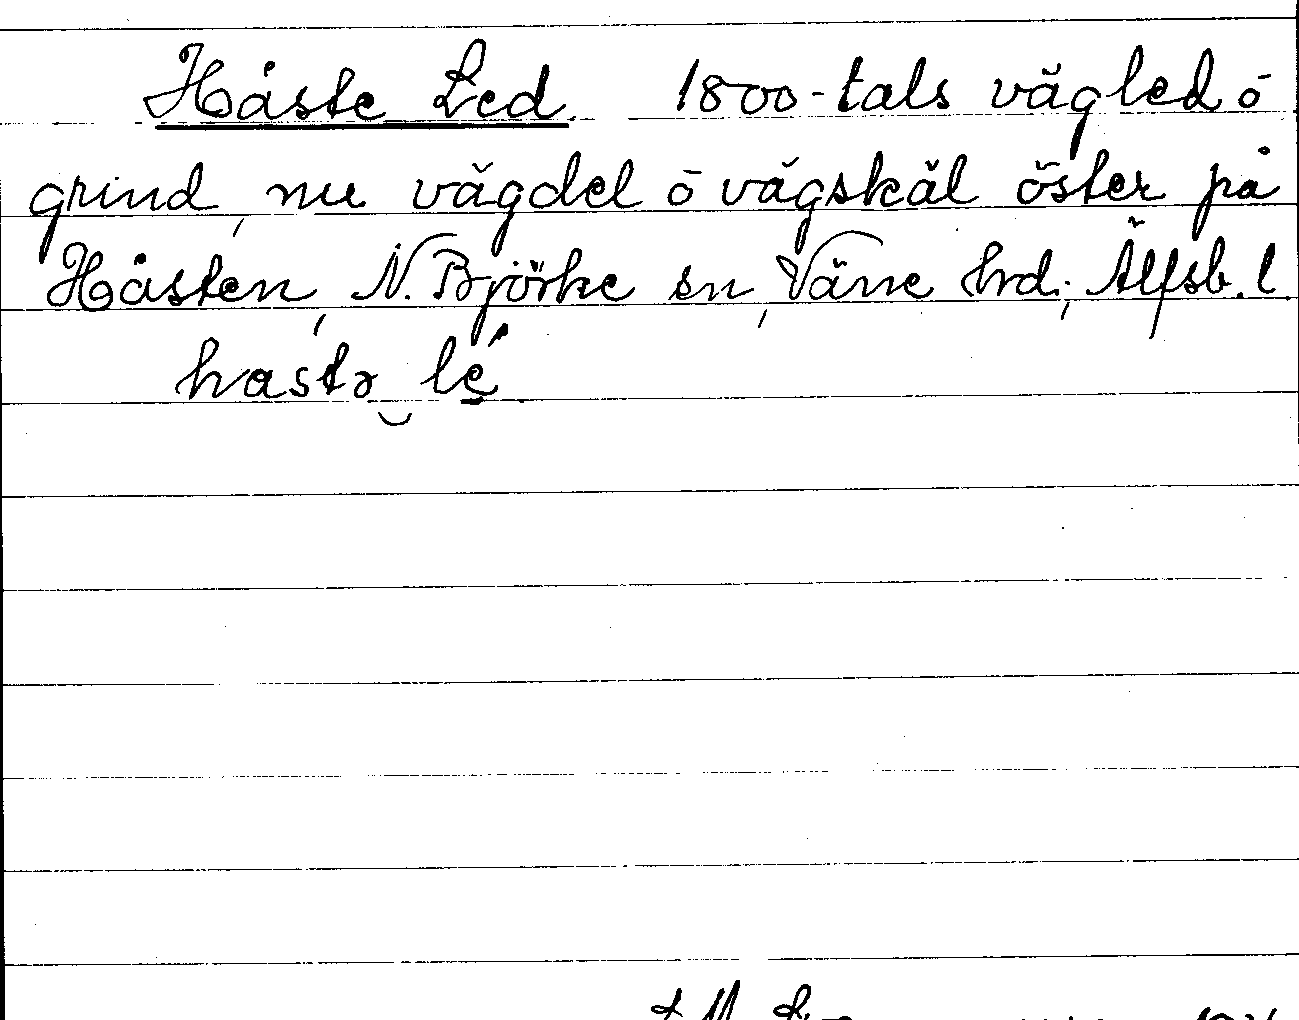 Håste Led 1800-tals vägled o
grind, nu vägdel o vägskäl öster på
Håsten, N. Björke sn, Väne hrd; Älfsb. l.
hastə lé